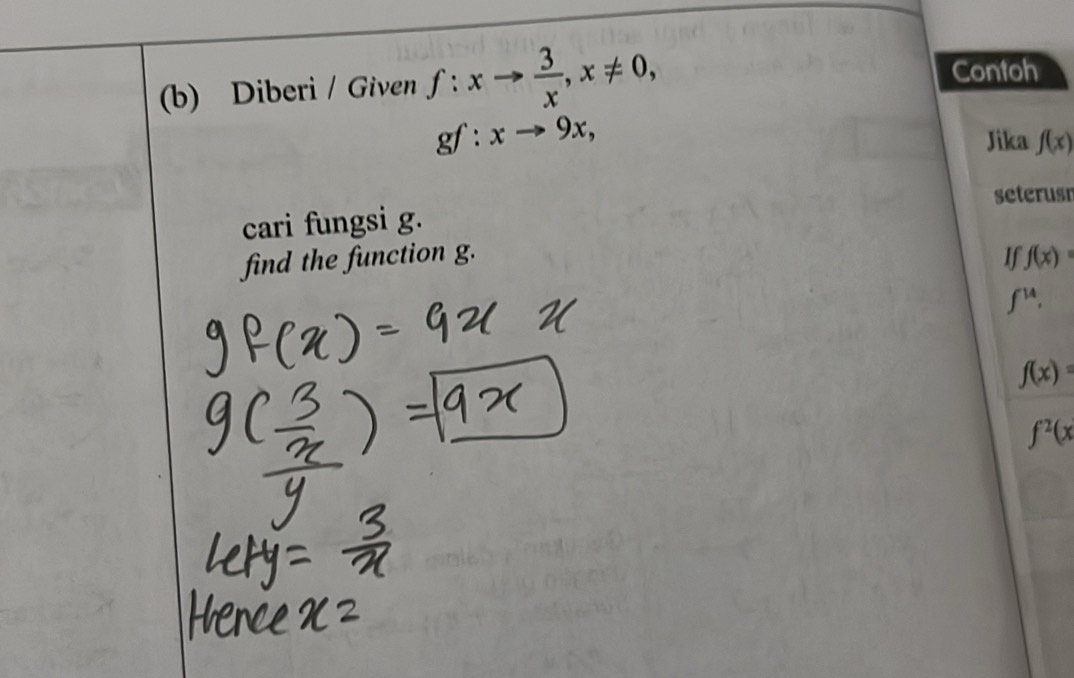 (b) Diberi / Given f : x → 3/x, x ≠ 0,
gf : x → 9x,
cari fungsi g.
find the function g.
gf(x) = 9x x
g(3/x) = 9x
y
let y = 3/x
Hence x =
Contoh
Jika f(x)
If f(x) =
f¹⁴.
f(x) =
f²(x